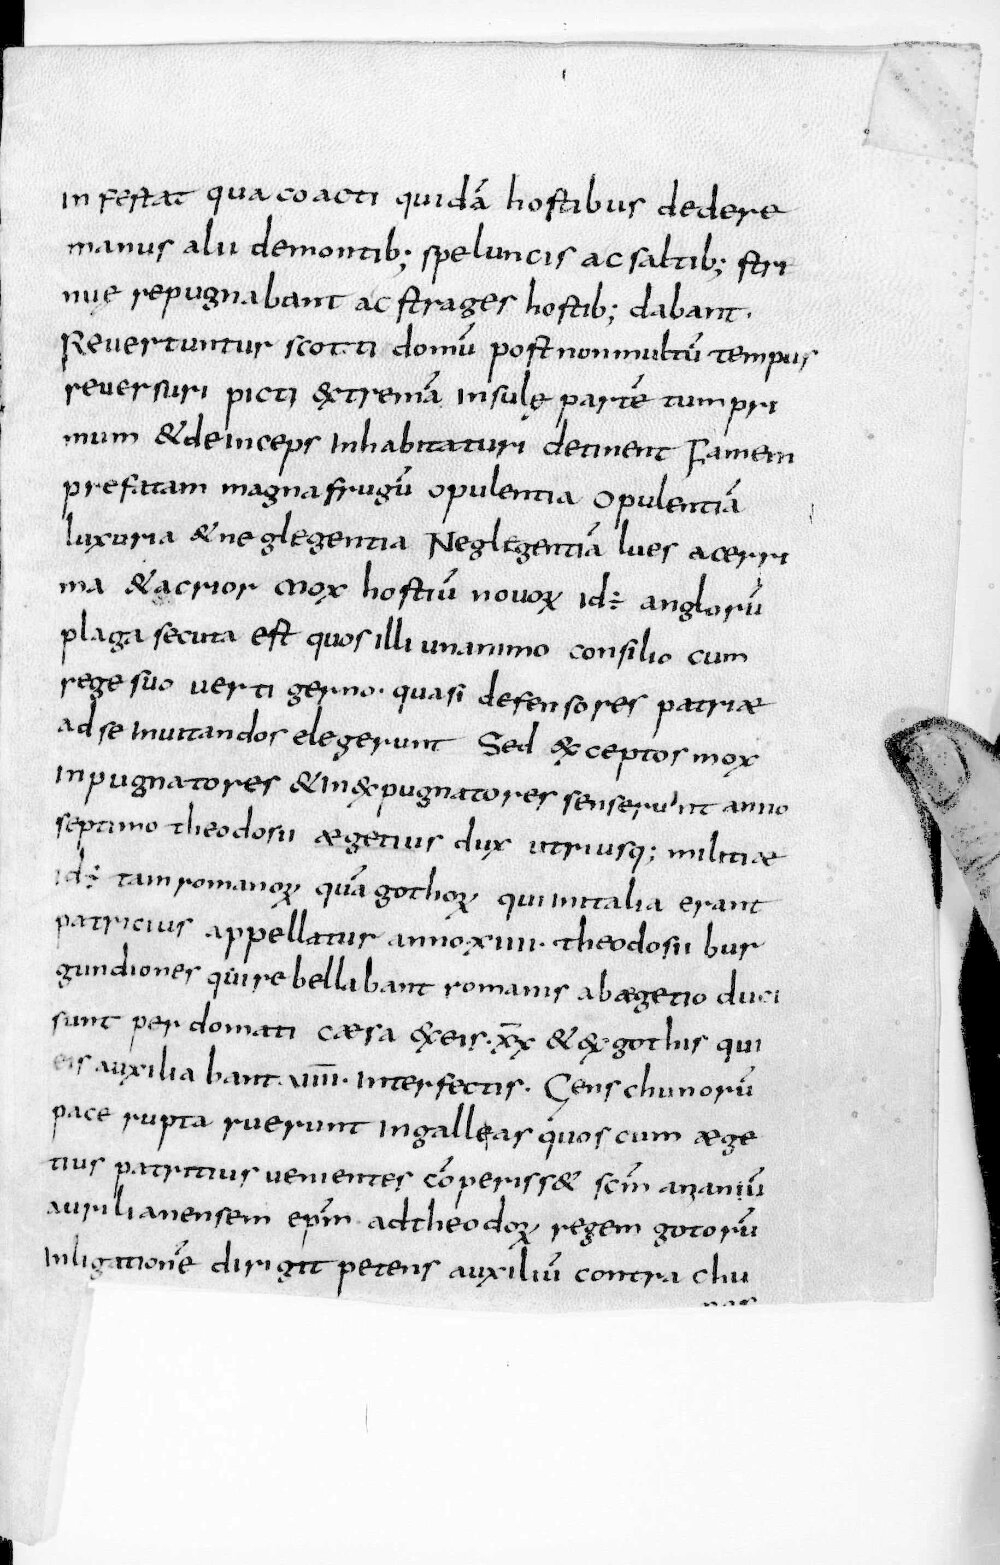 infestat qua coacti quidā hostibus dedere
manus alii demontib; speluncis ac saltib; stri
nuę repugnabant ac strages hostib; dabant.
Revertuntur scotti domū post non multū tempus
reversuri picti &xtremā insulę partē tum pri
mum & deinceps inhabitaturi detinent Famem
prefatam magna frugū opulentia opulentiā
luxuria & neglegentia Neglegentiā lues acerri
ma & acrior mox hostiū novoꝝ id÷ anglorū
plaga secuta est quos illi unanimo consilio cum
rege suo vertigerno· quasi defensores patriæ
ad se invitandos elegerunt Sed &xceptos mox
inpugnatores & in&xpugnatores senserunt anno
septimo theodosii ægetius dux utriusq; militiæ
id÷ tam romanoꝝ quā gothoꝝ qui in italia erant
patricius appellatur anno·xiiii· theodosii bur
gundiones qui rebellabant romanis ab ægetio duci
sunt perdomati cæsa &x eis·x̅x̅ & &x gothis qui
eis auxiliabant·v̅i̅i̅i̅· interfectis· Gens chunorū
pace rupta ruerunt in galleas quos cum æge
tius patritius venientes cōperiss& scm̄ anianiū
aurilianensem epm̄ ad theodoꝝ regem gotorū
in ligationē dirigit petens auxiliū contra chu
nos